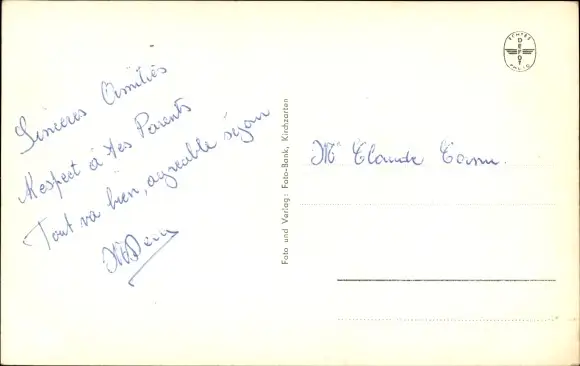 Sincères Amitiés
Respect à tes Parents
Tout va bien, agréable séjour
Foto und Verlag: Foto-Bank, Kirchzarten
ECHTES
DEFOT
PHOTO
Mr Claude